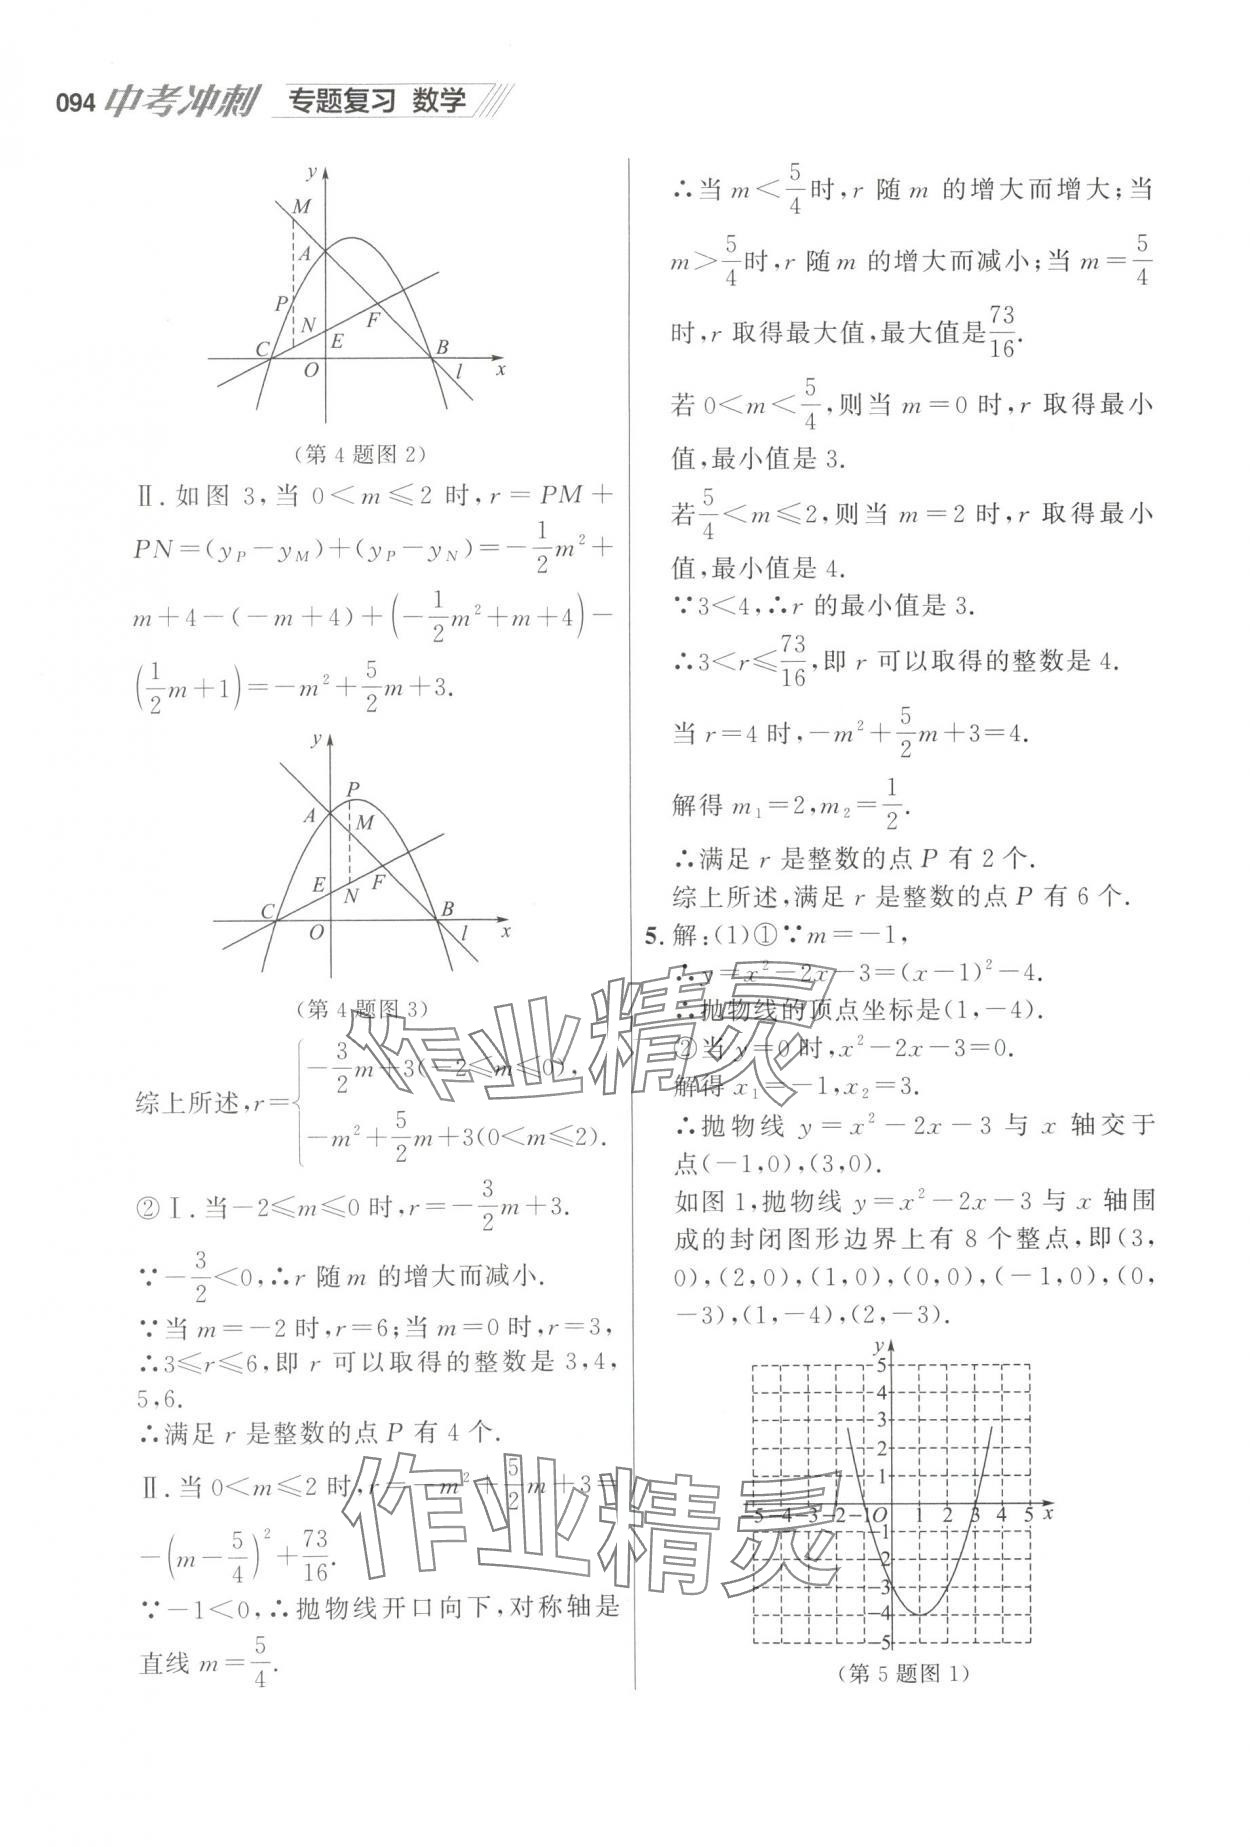 094 中考冲刺 专题复习 数学
y
M
A
P
N
F
E
C
B
O
l
x
(第 4 题图 2)
Ⅱ. 如图 3,当 0<m≤2 时,r=PM+
PN=(y_P-y_M)+(y_P-y_N)=-1/2m²+
m+4-(-m+4)+(-1/2m²+m+4)-
(1/2m+1)=-m²+5/2m+3.
y
P
A
M
E
F
N
C
B
O
l
x
(第 4 题图 3)
综上所述,r={-3/2m+3(-2≤m≤0),
-m²+5/2m+3(0<m≤2).
②Ⅰ. 当-2≤m≤0 时,r=-3/2m+3.
∵-3/2<0,∴r 随 m 的增大而减小.
∵当 m=-2 时,r=6;当 m=0 时,r=3,
∴3≤r≤6,即 r 可以取得的整数是 3,4,
5,6.
∴满足 r 是整数的点 P 有 4 个.
Ⅱ. 当 0<m≤2 时,r=-m²+5/2m+3=
-(m-5/4)²+73/16.
∵-1<0,∴抛物线开口向下,对称轴是
直线 m=5/4.
∴当 m<5/4时,r 随 m 的增大而增大;当
m>5/4时,r 随 m 的增大而减小;当 m=5/4
时,r 取得最大值,最大值是73/16.
若 0<m<5/4,则当 m=0 时,r 取得最小
值,最小值是 3.
若5/4<m≤2,则当 m=2 时,r 取得最小
值,最小值是 4.
∵3<4,∴r 的最小值是 3.
∴3<r≤73/16,即 r 可以取得的整数是 4.
当 r=4 时,-m²+5/2m+3=4.
解得 m₁=2,m₂=1/2.
∴满足 r 是整数的点 P 有 2 个.
综上所述,满足 r 是整数的点 P 有 6 个.
5. 解:(1)①∵m=-1,
∴y=x²-2x-3=(x-1)²-4.
∴抛物线的顶点坐标是(1,-4).
②当 y=0 时,x²-2x-3=0.
解得 x₁=-1,x₂=3.
∴抛物线 y=x²-2x-3 与 x 轴交于
点(-1,0),(3,0).
如图 1,抛物线 y=x²-2x-3 与 x 轴围
成的封闭图形边界上有 8 个整点,即(3,
0),(2,0),(1,0),(0,0),(-1,0),(0,
-3),(1,-4),(2,-3).
y
5
4
3
2
1
-5 -4 -3 -2 -1 O 1 2 3 4 5 x
-1
-2
-3
-4
-5
(第 5 题图 1)
作业精灵
作业精灵